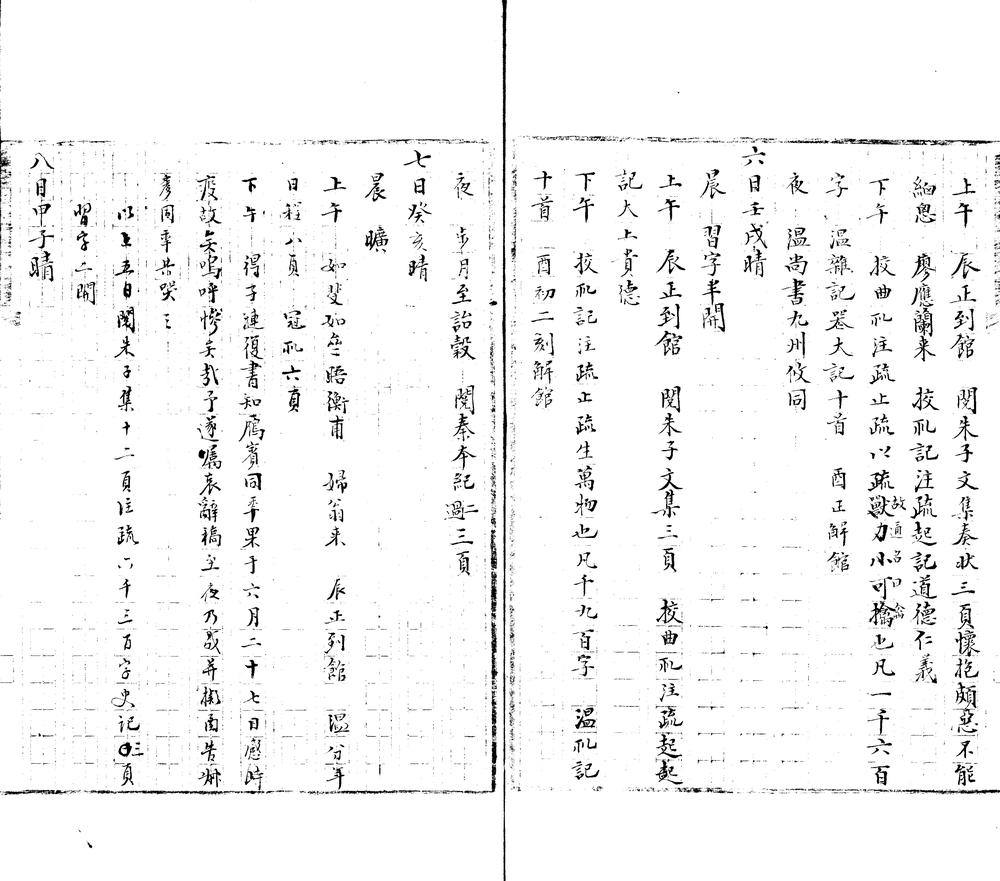 上午　辰正到館　閱朱子文集奏狀三頁懷抱頗惡不能
細思　廖應蘭来　挍礼記注疏起記道德仁義
下午　挍曲礼注疏止疏以疏獸力小可擒故通名曰禽也凡一千六百
字　温雜記器大記十首　酉正解館
夜　温尚書九州攸同
六日壬戌晴
晨　習字半開
上午　辰正到館　閱朱子文集三頁　挍曲礼注疏起起
記大上貴德
下午　挍礼記注疏止疏生萬物也凡千九百字　温礼記
十首　酉初二刻解館
夜　步月至詒穀　閱秦本紀二過三頁
七日癸亥晴
晨　曠
上午　如斐如壑晤衡甫　婦翁来　辰正到館　温分年
日程八頁　冠礼六頁
下午　得子漣復書知鴈賓同年果于六月二十七日感時
疫故矣嗚呼慘矣哉予遂嘱哀辭稿至夜乃
彥同年共哭之
以上五日閱朱子集十二頁注疏六千三百字史記三頁
習字二開
八日甲子晴